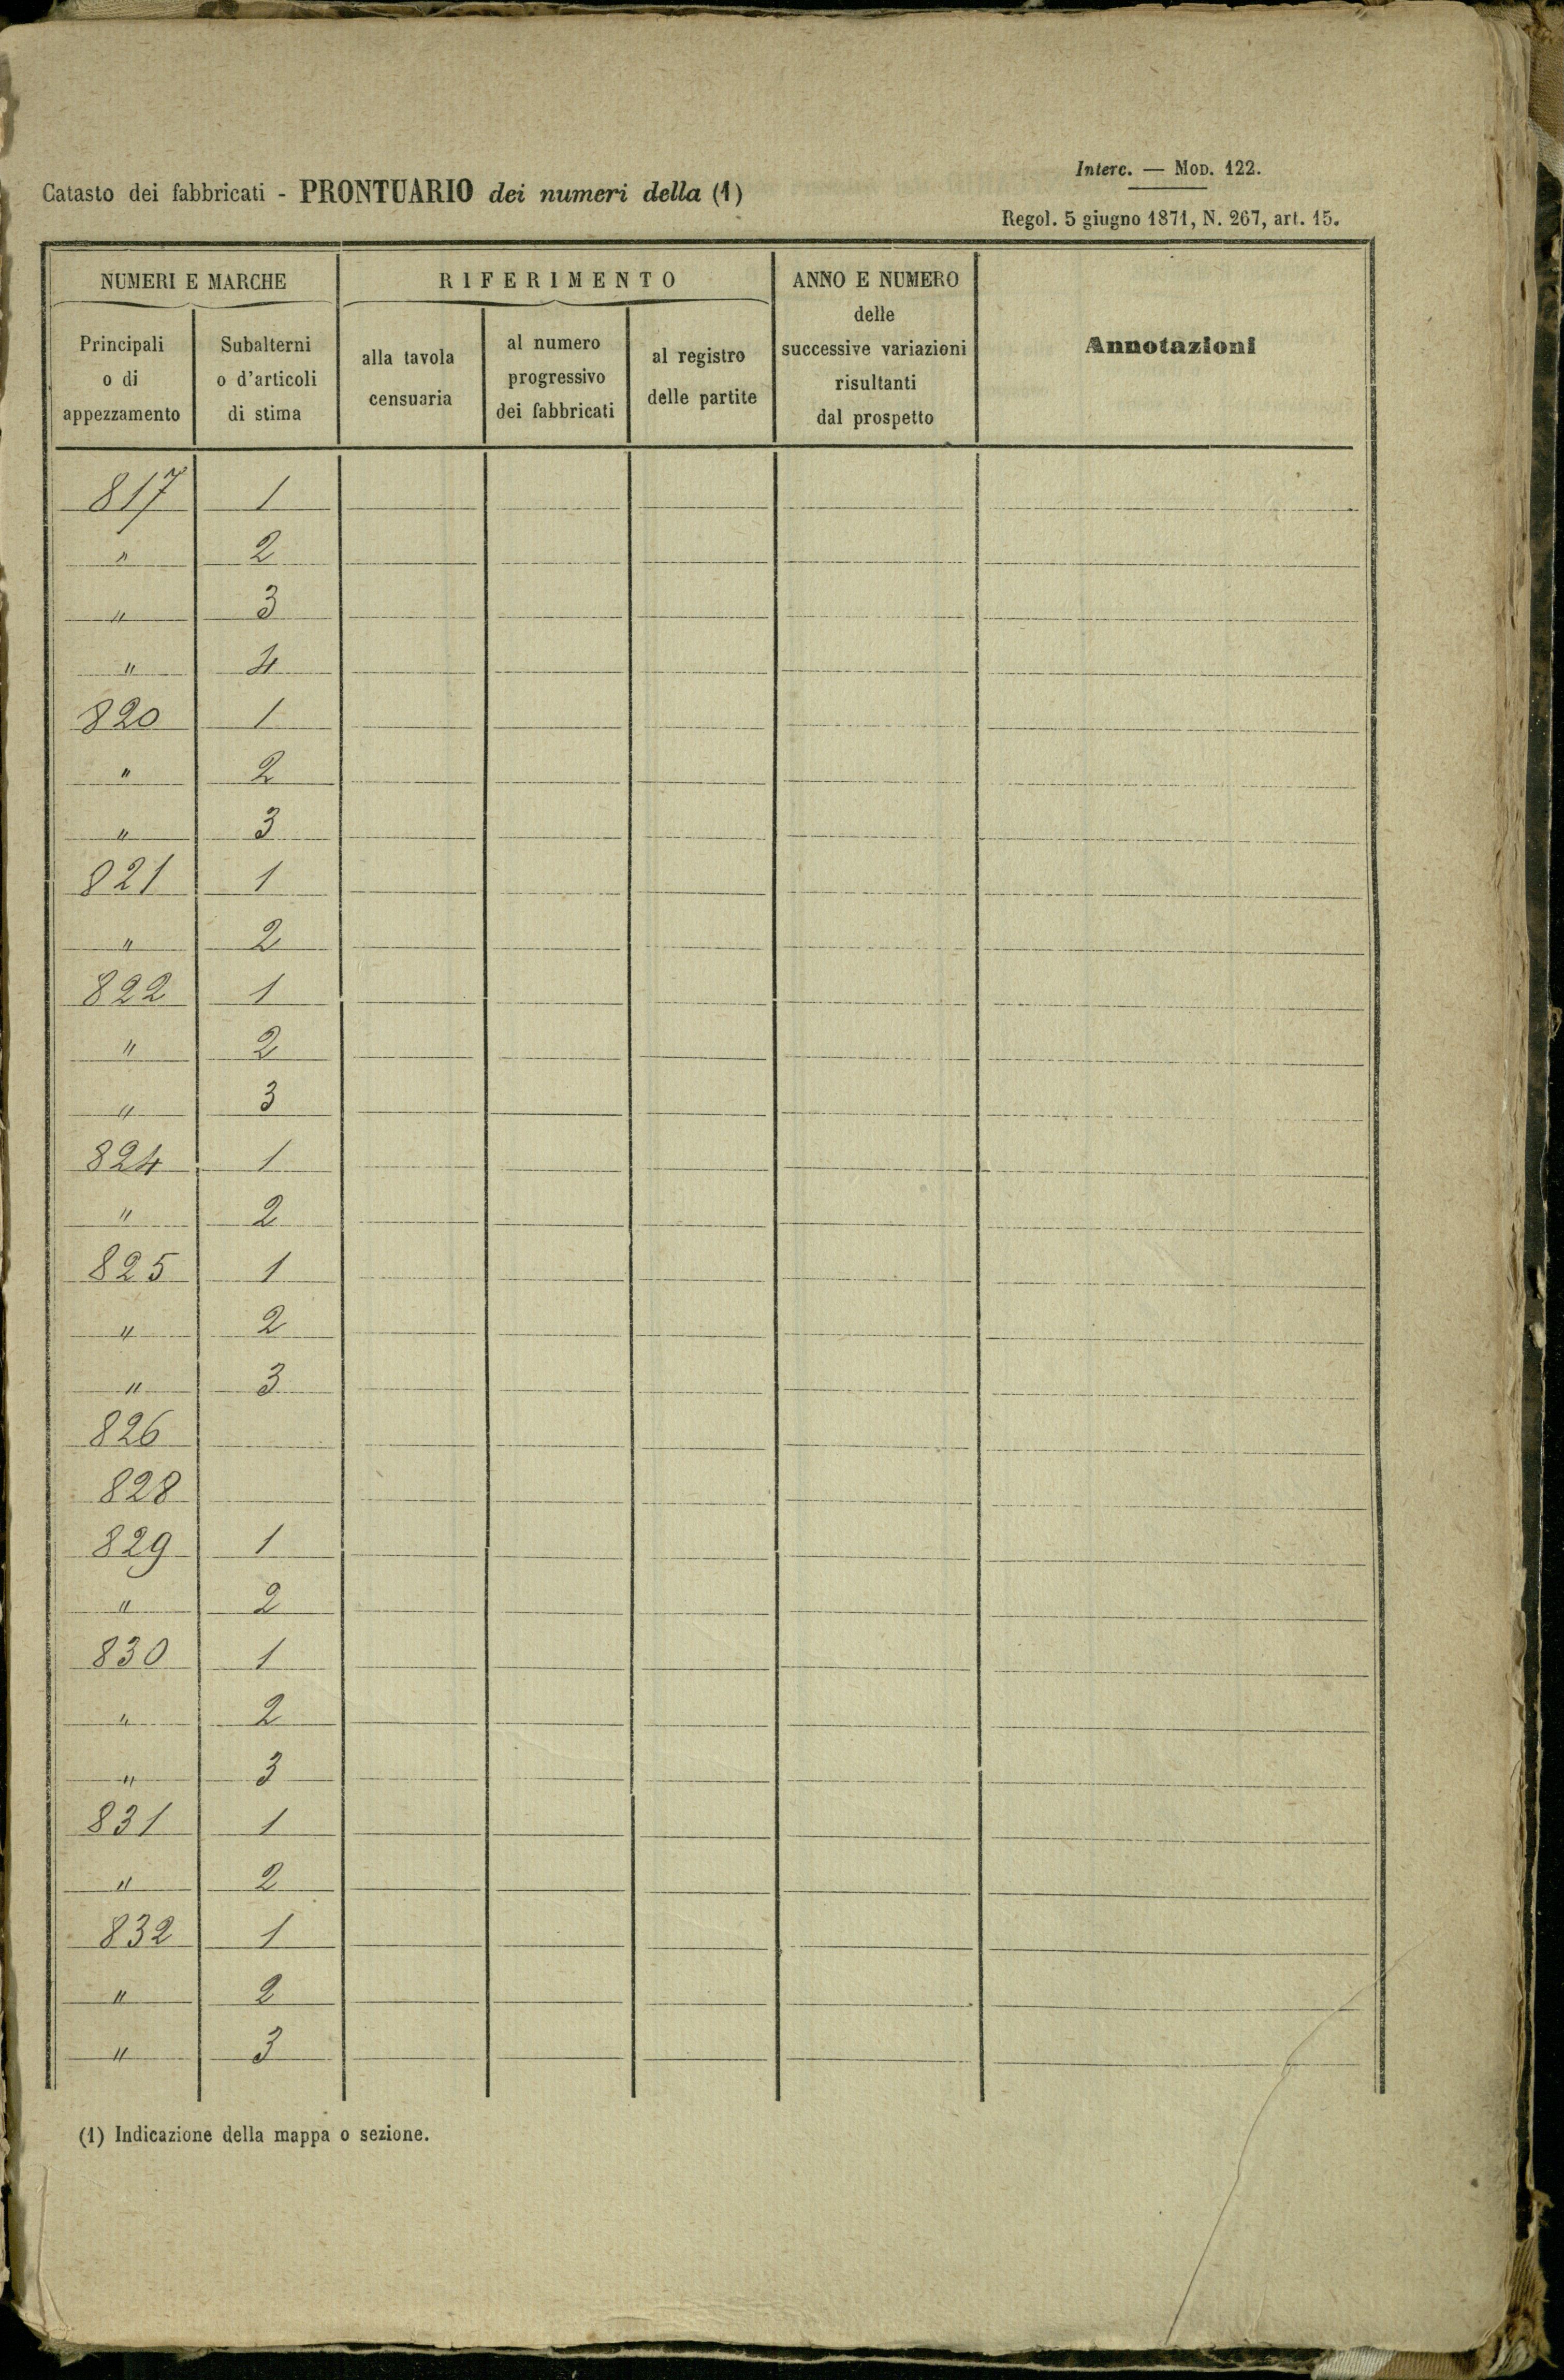 Interc. — Mod. 122.
Catasto dei fabbricati - PRONTUARIO dei numeri della (1)
Regol. 5 giugno 1871, N. 267, art. 15.
NUMERI E MARCHE
RIFERIMENTO
ANNO E NUMERO
delle
successive variazioni
risultanti
dal prospetto
Annotazioni
Principali
o di
appezzamento
Subalterni
o d'articoli
di stima
alla tavola
censuaria
al numero
progressivo
dei fabbricati
al registro
delle partite
817 1
" 2
" 3
" 4
820 1
" 2
" 3
821 1
" 2
822 1
" 2
" 3
824 1
" 2
825 1
" 2
" 3
826
828
829 1
" 2
830 1
" 2
" 3
831 1
" 2
832 1
" 2
" 3
(1) Indicazione della mappa o sezione.